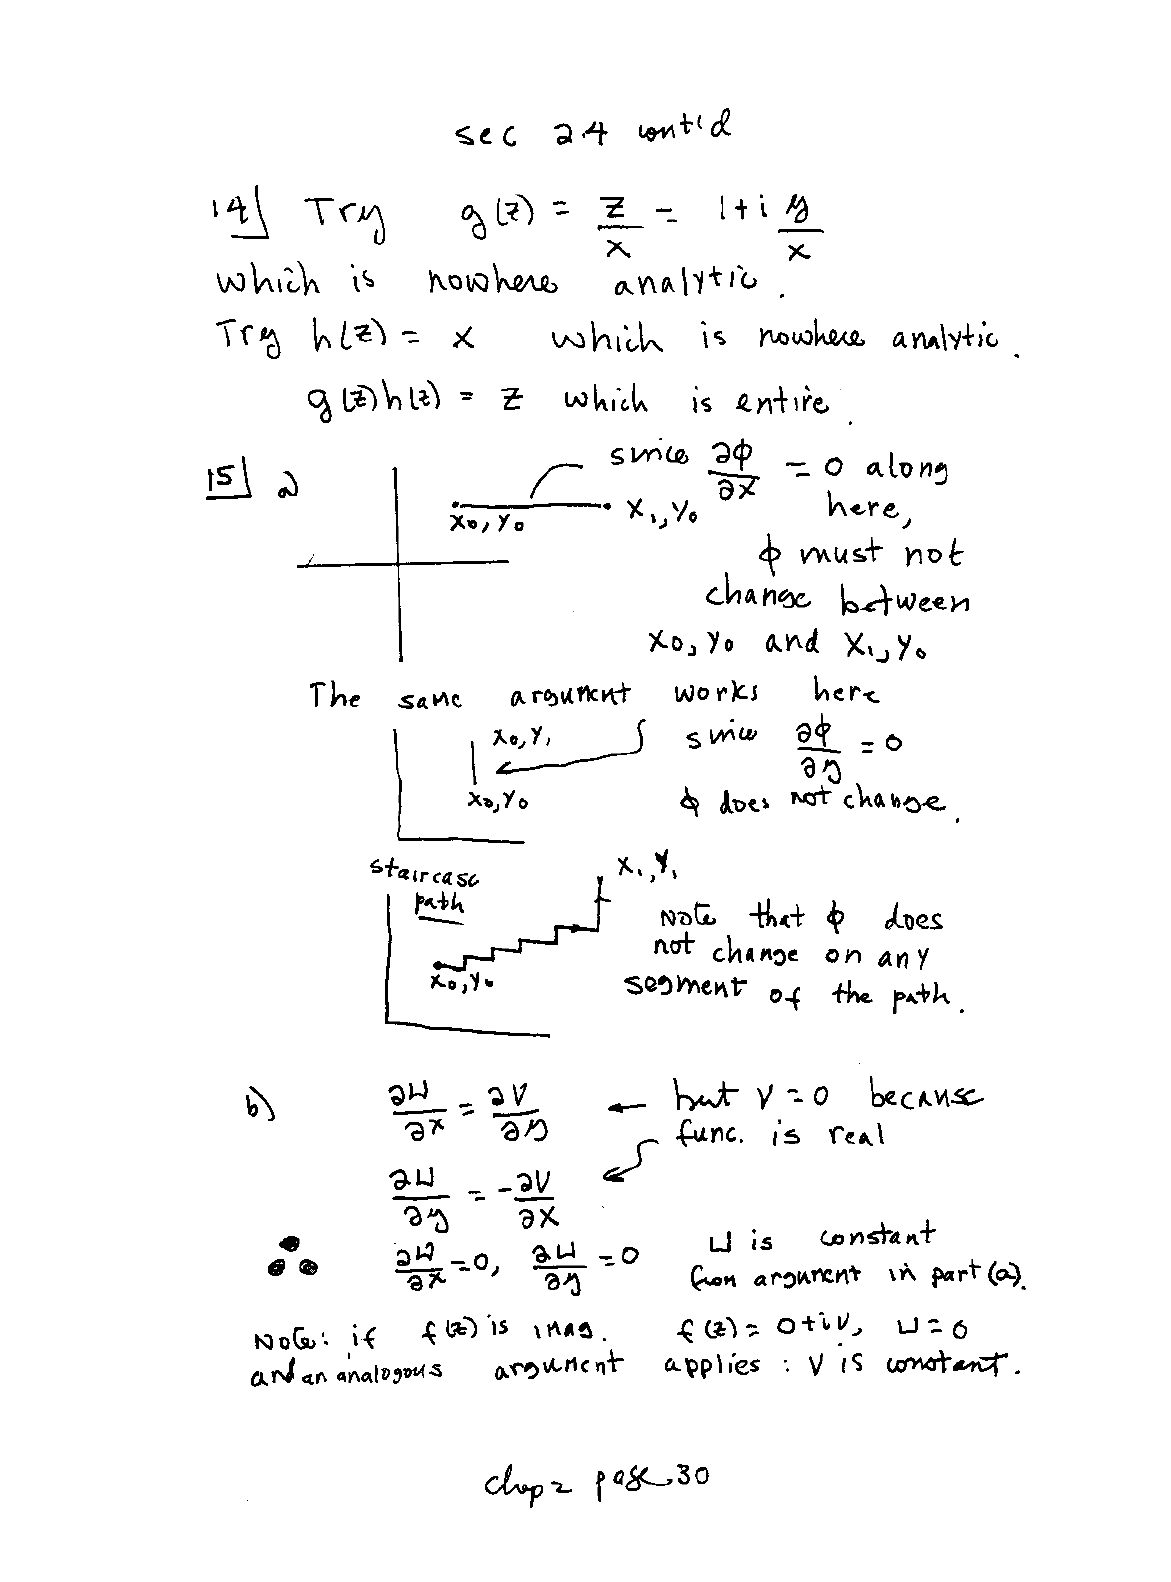 sec 2.4 cont'd
14] Try g(z) = z/x = 1+i y/x
which is nowhere analytic.
Try h(z) = x which is nowhere analytic.
g(z)h(z) = z which is entire.
15] a) since ∂φ/∂x = 0 along
x₀, y₀ x₁, y₀ here,
φ must not
change between
x₀, y₀ and x₁, y₀
The same argument works here
x₀, y₁ since ∂φ/∂y = 0
x₀, y₀ φ does not change.
staircase x₁, y₁
path
Note that φ does
not change on any
x₀, y₀ segment of the path.
b) ∂u/∂x = ∂v/∂y ← but v = 0 because
func. is real
∂u/∂y = -∂v/∂x
∴ ∂u/∂x = 0, ∂u/∂y = 0 u is constant
from argument in part (a).
Note: if f(z) is imag. f(z) = 0+iv, u = 0
and an analogous argument applies : v is constant.
chap 2 page 30